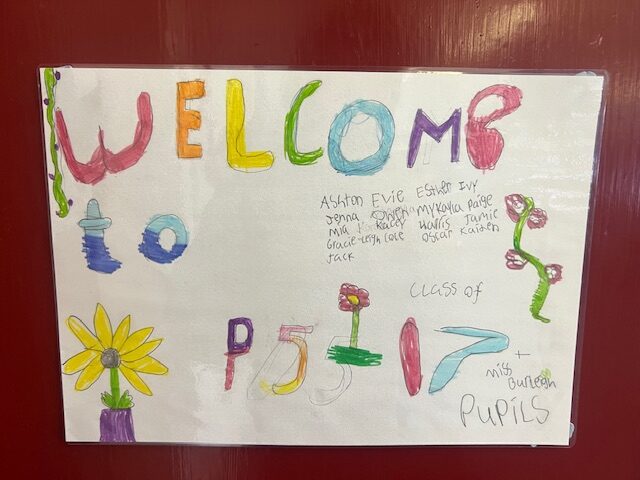 WELCOME
to
Ashton Evie Esther Ivy
Jenna Owen Mykayla Paige
Mia Kacey Harris Jamie
Gracie-leigh Cole Oscar Kaiden
Jack
CLASS of
P5 17
+
Miss
Burleigh
PUPILS